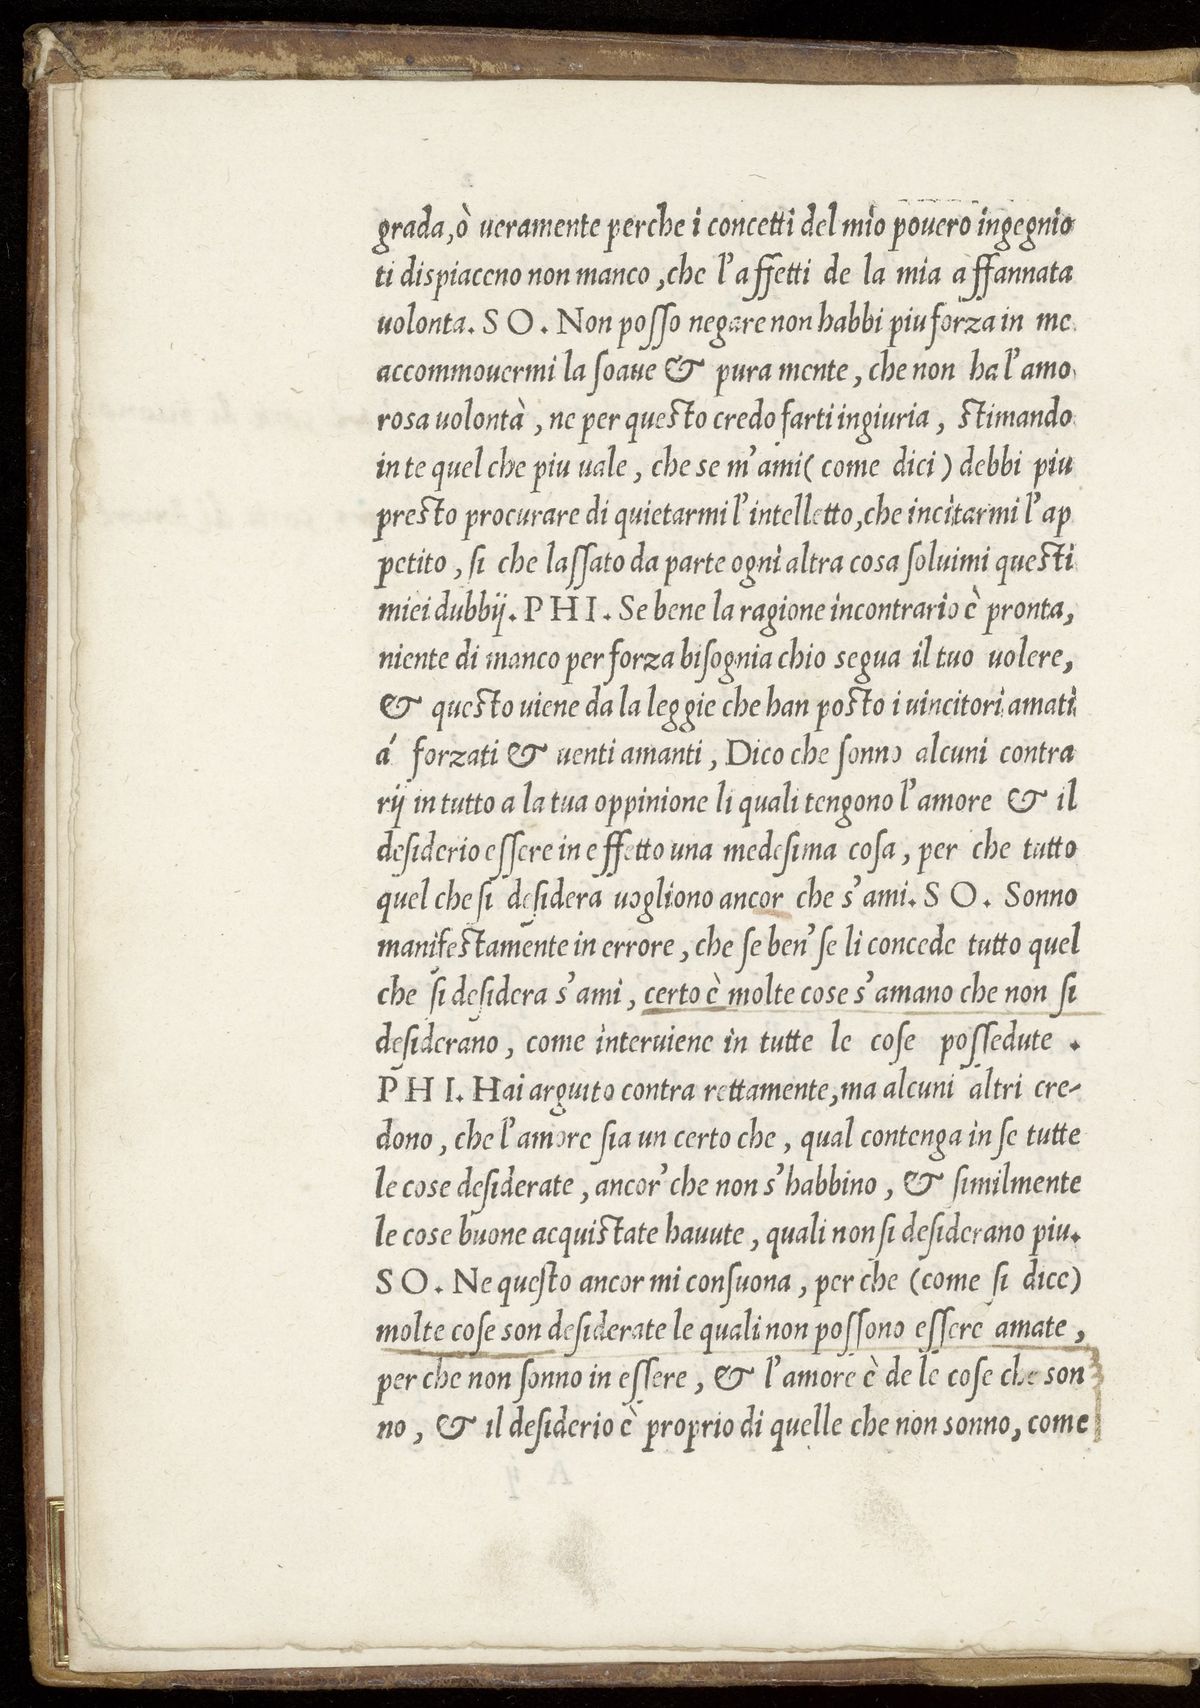 grada, ò ueramente perche i concetti del mio pouero ingegnio
ti dispiaceno non manco, che l'affetti de la mia affannata
uolonta. S O. Non posso negare non habbi piu forza in me
accommouermi la soaue & pura mente, che non ha l'amo
rosa uolontà, ne per questo credo farti ingiuria, stimando
in te quel che piu uale, che se m'ami (come dici) debbi piu
presto procurare di quietarmi l'intelletto, che incitarmi l'ap
petito, si che lassato da parte ogni altra cosa soluimi questi
miei dubbij. P H I. Se bene la ragione incontrario è pronta,
niente di manco per forza bisognia chio segua il tuo uolere,
& questo uiene da la leggie che han posto i uincitori amati
á forzati & uenti amanti, Dico che sonno alcuni contra
rij in tutto a la tua oppinione li quali tengono l'amore & il
desiderio essere in effetto una medesima cosa, per che tutto
quel che si desidera uogliono ancor che s'ami. S O. Sonno
manifestamente in errore, che se ben' se li concede tutto quel
che si desidera s'ami, certo è molte cose s'amano che non si
desiderano, come interuiene in tutte le cose possedute.
P H I. Hai arguito contra rettamente, ma alcuni altri cre-
dono, che l'amore sia un certo che, qual contenga in se tutte
le cose desiderate, ancor' che non s'habbino, & similmente
le cose buone acquistate hauute, quali non si desiderano piu.
S O. Ne questo ancor mi consuona, per che (come si dice)
molte cose son desiderate le quali non possono essere amate,
per che non sonno in essere, & l'amore è de le cose che son
no, & il desiderio è proprio di quelle che non sonno, come